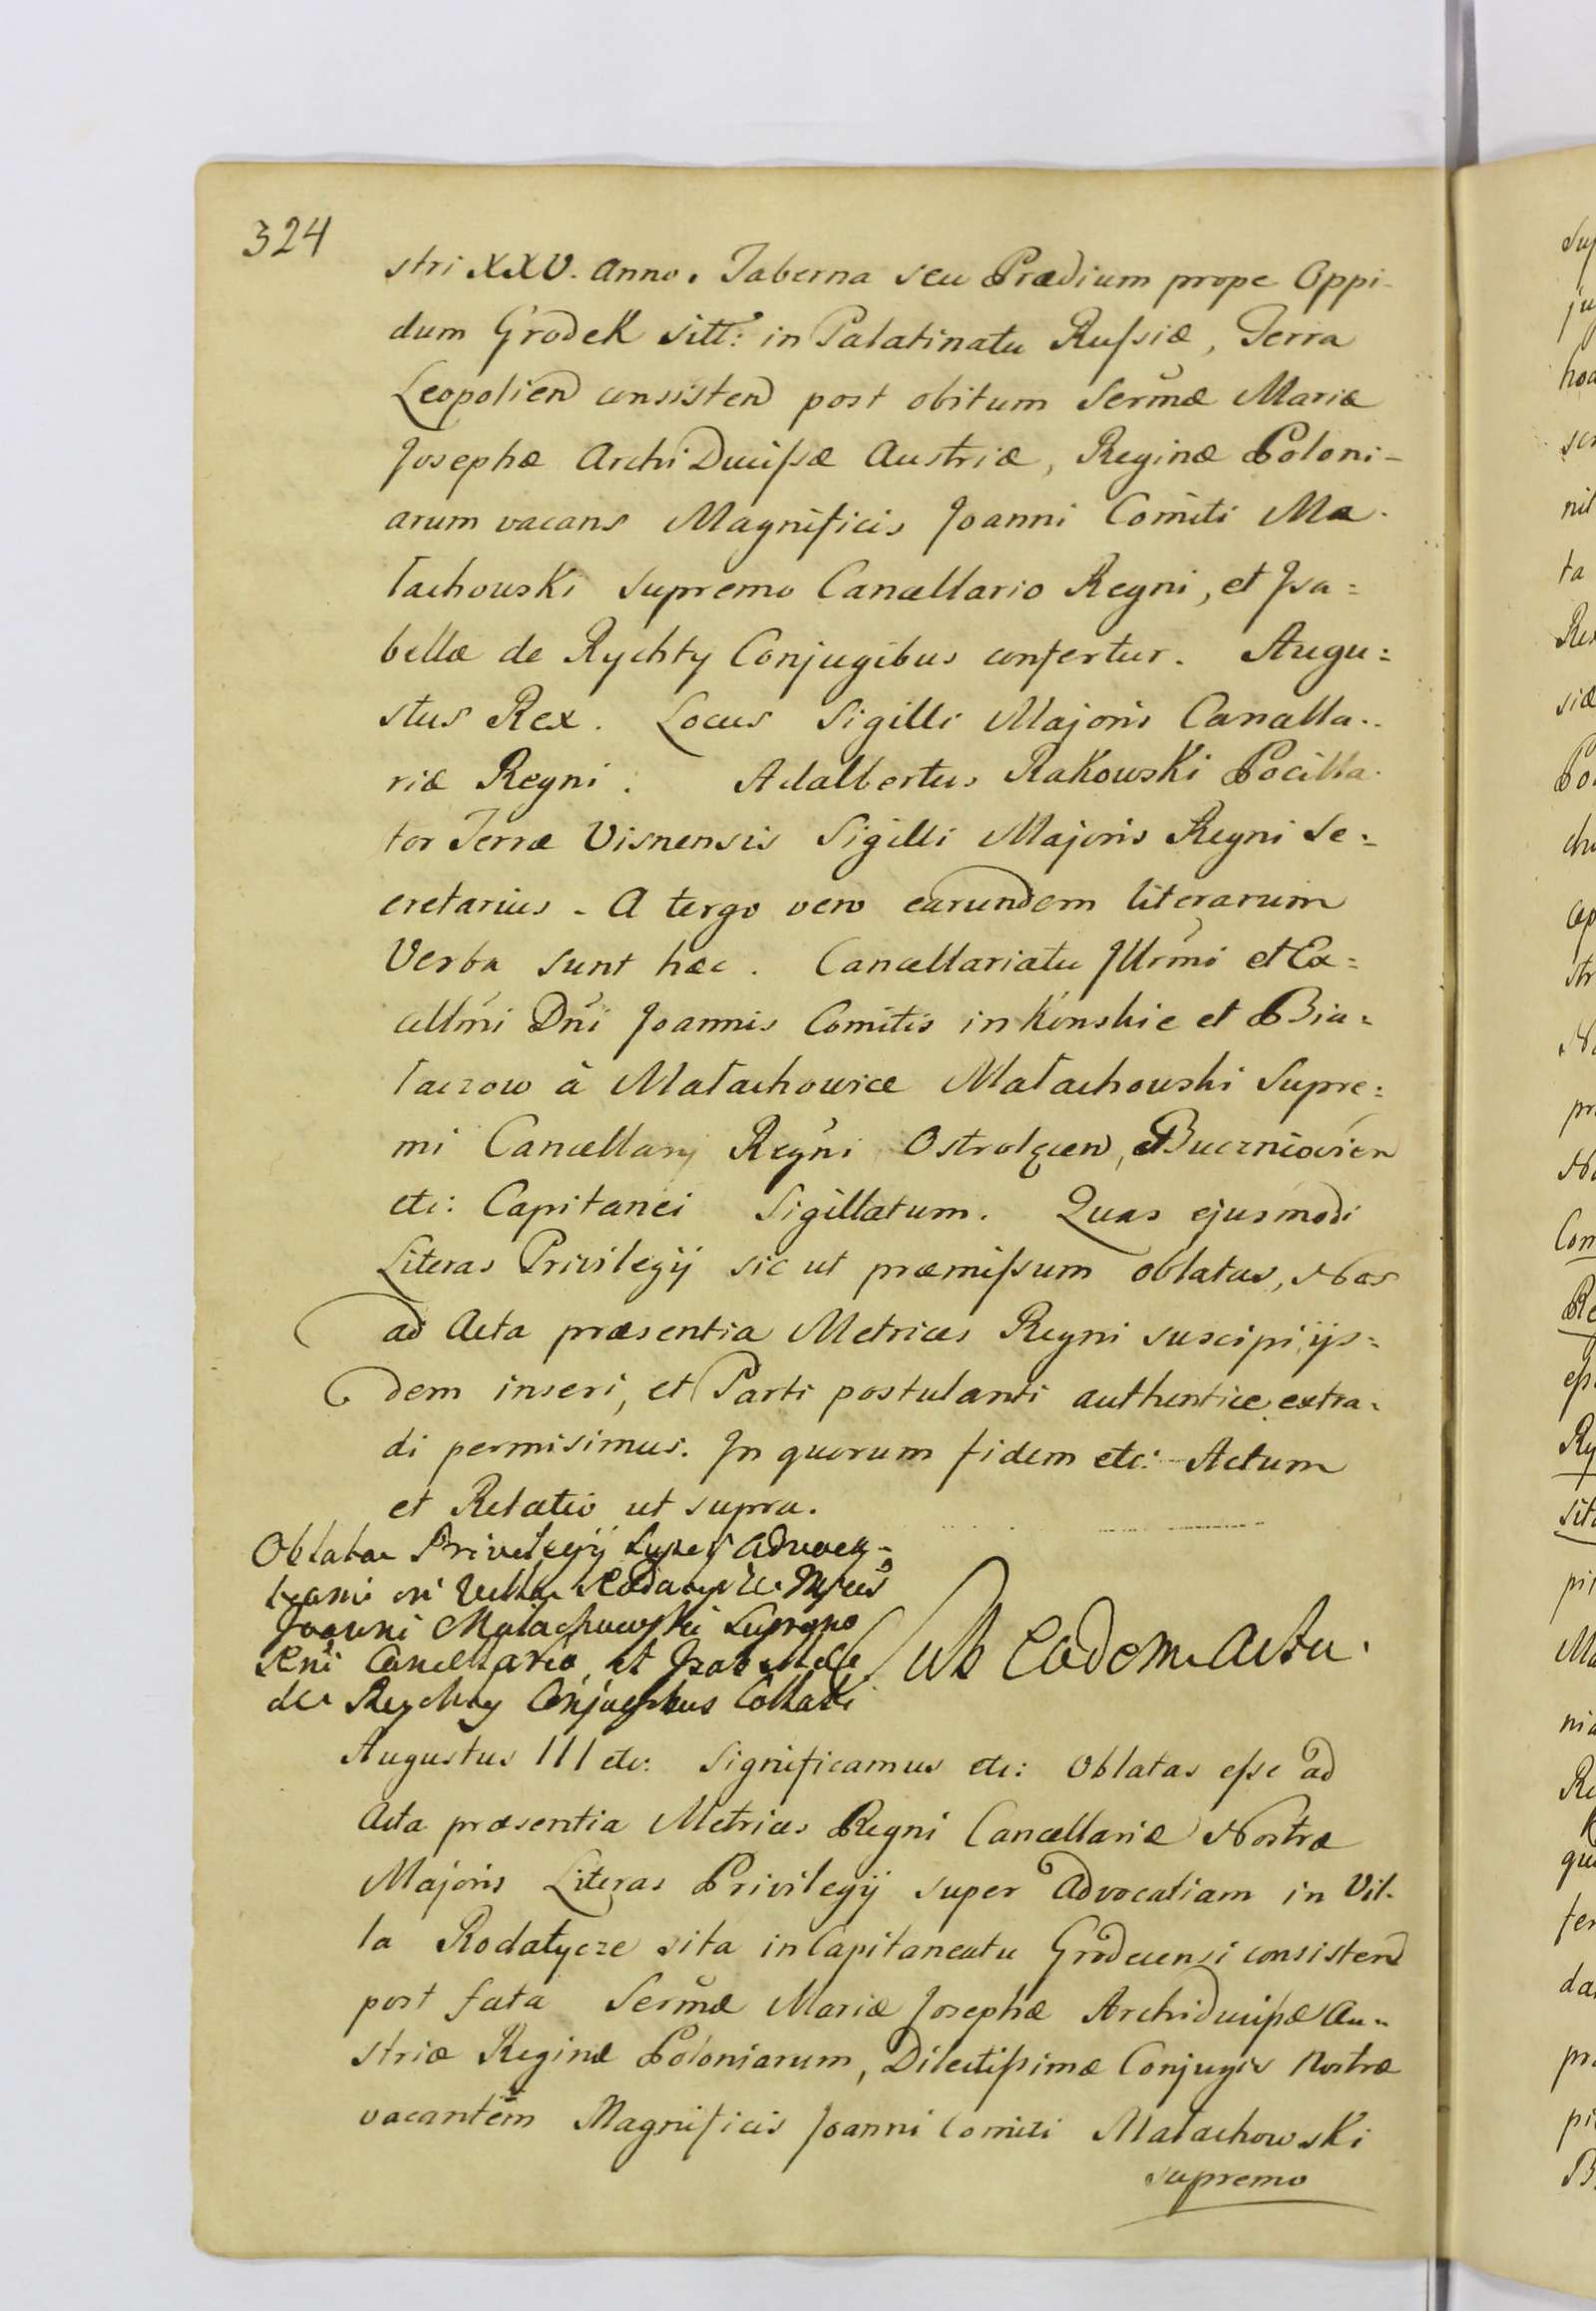 324
stri XXV. Anno. Taberna seu Prædium prope Oppi-
dum Grodek sitt: in Palatinatu Russiæ, Terra
Leopolien consisten post obitum Sermæ Mariæ
Josephæ ArchiDucissæ Austriæ, Reginæ Poloni-
arum vacans Magnificis Joanni Comiti Ma-
łachowski Supremo Cancellario Regni, et Isa=
bellæ de Rychty Conjugibus confertur. Augu=
stus Rex. Locus Sigilli Majoris Cancella-
riæ Regni. Adalbertus Rakowski Pocilla-
tor Terræ Visnensis Sigilli Majoris Regni Se=
cretarius. A tergo vero earundem literarum
Verba sunt hæc. Cancellariatu Illrmi et Ex=
cellmi Dni Joannis Comitis in Końskie et Bia=
łaczow à Małachowice Małachowski Supre=
mi Cancellarij Regni Ostrołęcen, et Buczniovien
etc: Capitanei Sigillatum. Quas ejusmodi
Literas Privilegij sic ut præmissum oblatas, Nos
ad Acta præsentia Metrices Regni suscipi, ijs=
dem inseri, et Parti postulanti authentice extra=
di permisimus. In quorum fidem etc: Actum
et Relatio ut supra.
Oblata Privilegij super Advoca-
tiam in Villa Rodatycze Mfcis
Joanni Małachowski Supremo
Rni Cancellario, et Isabellæ
de Rychty Conjugibus Collati
Sub Eadem Actu.
Augustus III etc: Significamus etc: Oblatas esse ad
Acta præsentia Metrices Regni Cancellariæ Nostræ
Majoris Literas Privilegij super Advocatiam in Vil-
la Rodatycze sita in Capitaneatu Grodecensi consisten
post fata Sermæ Mariæ Josephæ Archiducissæ Au=
striæ Reginæ Poloniarum, Dilectissimæ Conjugis Nostræ
vacantem Magnificis Joanni Comiti Małachowski
supremo